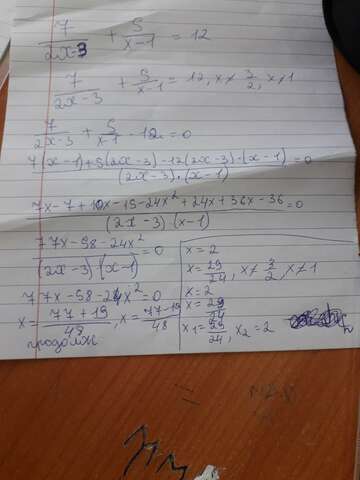 7/(2x-3) + 5/(x-1) = 12
7/(2x-3) + 5/(x-1) = 12, x≠ 3/2, x≠1
7/(2x-3) + 5/(x-1) - 12 = 0
(7(x-1)+5(2x-3)-12(2x-3)·(x-1))/((2x-3)·(x-1)) = 0
(7x-7+10x-15-24x²+24x+36x-36)/((2x-3)·(x-1)) = 0
(77x-58-24x²)/((2x-3)(x-1)) = 0
77x-58-24x²=0
x= (77+19)/48, x= (77-19)/48
продолж
x=2
x= 29/24, x≠ 3/2, x≠1
x=2
x= 29/24
x₁= 29/24, x₂=2